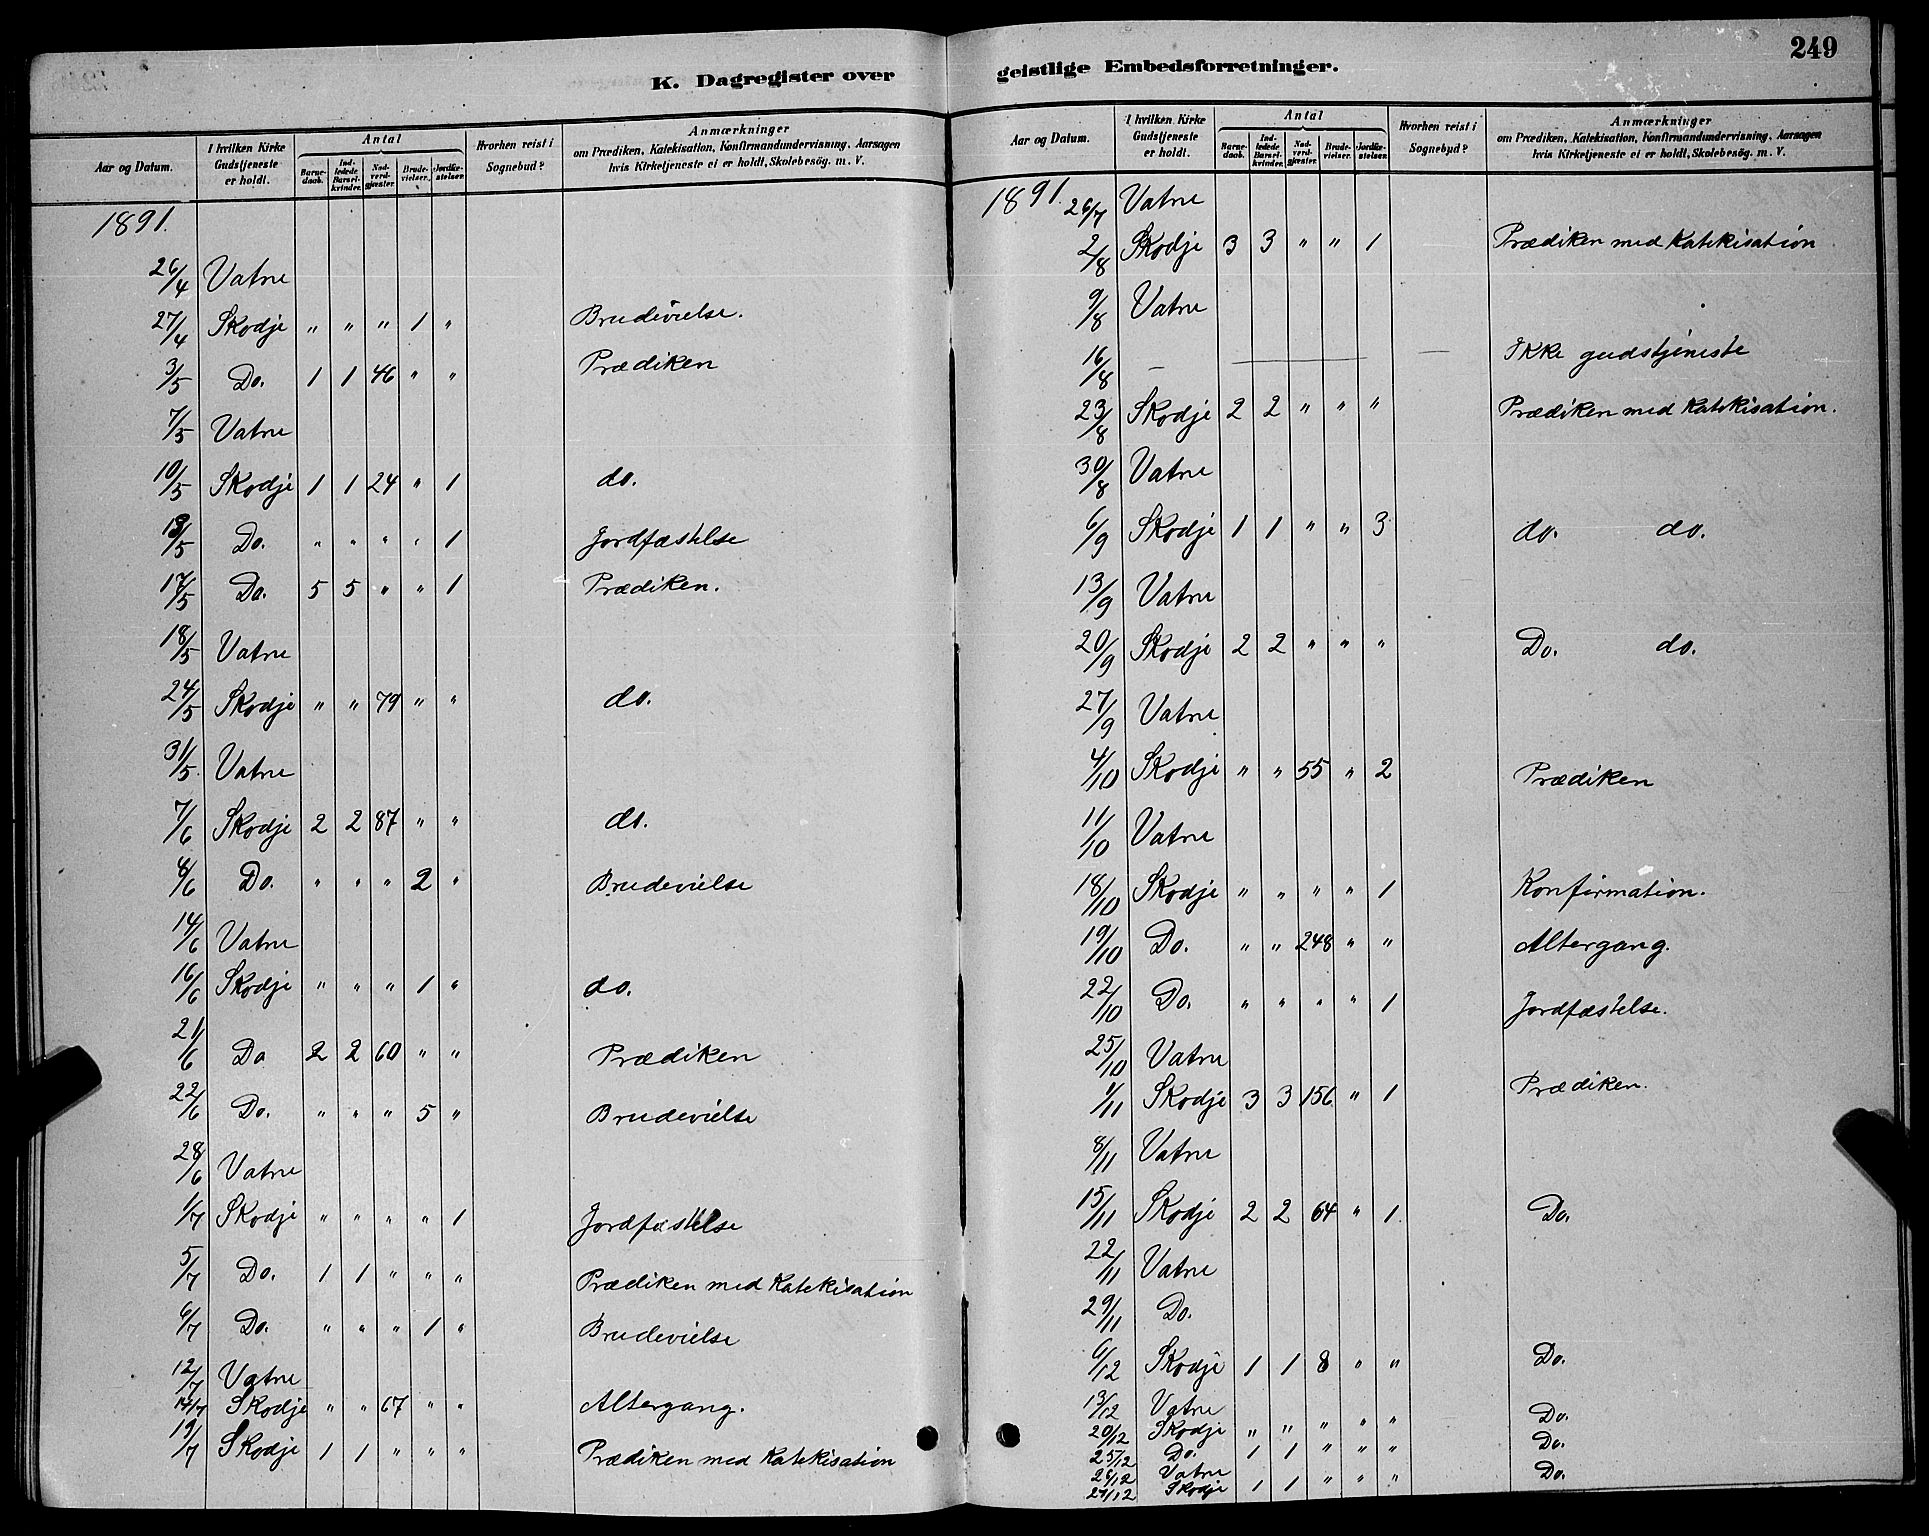 K. Dagregister over
Aar og Datum. | I hvilken Kirke Gudstjeneste er holdt. | Antal: Barnedaab. | Indledede Barselkvinder. | Nadverdgjæster. | Brudevielser. | Jordfæstelser. | Hvorhen reist i Sognebud? | Anmærkninger om Prædiken, Katekisation, Konfirmandundervisning, Aarsagen hvis Kirketjeneste ei er holdt, Skolebesög. m. V.
1891.
26/4 Vatne
27/4 Skodje " " " 1 " Brudevielse.
3/5 Do. 1 1 46 " " Prædiken
7/5 Vatne
10/5 Skodje 1 1 24 " 1 do.
Do. " " " " 1 Jordfæstelse
17/5 Do. 5 5 " " 1 Prædiken.
18/5 Vatne
24/5 Skodje " " 79 " " do.
31/5. Vatne
7/6 Skodje 2 2 87 " " do.
/6 Do. " " " 2 " Brudevielse
14/6 Vatne
16/6 Skodje " " " 1 " do.
21/6 Do 2 2 60 " " Prædiken
22/6 Do. " " " 5 " Brudevielse
28/6 Vatne
1/7 Skodje " " " " 1 Jordfæstelse
5/7 Do. 1 1 " " " Prædiken med Katekisation
6/7 Do. " " " 1 " Brudevielse
12/7 Vatne
14/7 Skodje " " 67 " " Altergang.
19/7 Skodje 1 1 " " " Prædiken med Katekisation
249
geistlige Embedsforretninger.
Aar og Datum. | I hvilken Kirke Gudstjeneste er holdt. | Antal: Barnedaab. | Indledede Barselkvinder. | Nadverdgjæster. | Brudevielser. | Jordfæstelser. | Hvorhen reist i Sognebud? | Anmærkninger om Prædiken, Katekisation, Konfirmandundervisning, Aarsagen hvis Kirketjeneste ei er holdt, Skolebesög. m. V.
1891. 26/7 Vatne
2/8 Skodje 3 3 " " 1 Prædiken med Katekisation
9/8 Vatne
16/8 — — — Ikke gudstjeneste
23/8 Skodje 2 2 " " " Prædiken med Katekisation.
30/8 Vatne
6/9 Skodje 1 1 " " 3 do. do.
13/9 Vatne
20/9 Skodje 2 2 " " " Do. do.
27/9 Vatne
4/10 Skodje " " 55 " 2 Prædiken
11/10 Vatne
18/10 Skodje " " " " 1 Konfirmation.
19/10 Do. " " 248 " " Altergang.
22/10 Do. " " " " 1 Jordfæstelse.
25/10 Vatne
1/11 Skodje 3 3 156 " 1 Prædiken.
8/11 Vatne
15/11 Skodje 2 2 64 " 1. Do.
22/11 Vatne
29/11 Do.
6/12 Skodje 1 1 8 " " Do.
13/12 Vatne
20/12 Skodje " " " " " Do.
25/12 Do. 1 1 " " " Do.
26/12 Vatne
27/12 Skodje 1 1 " " " Do.